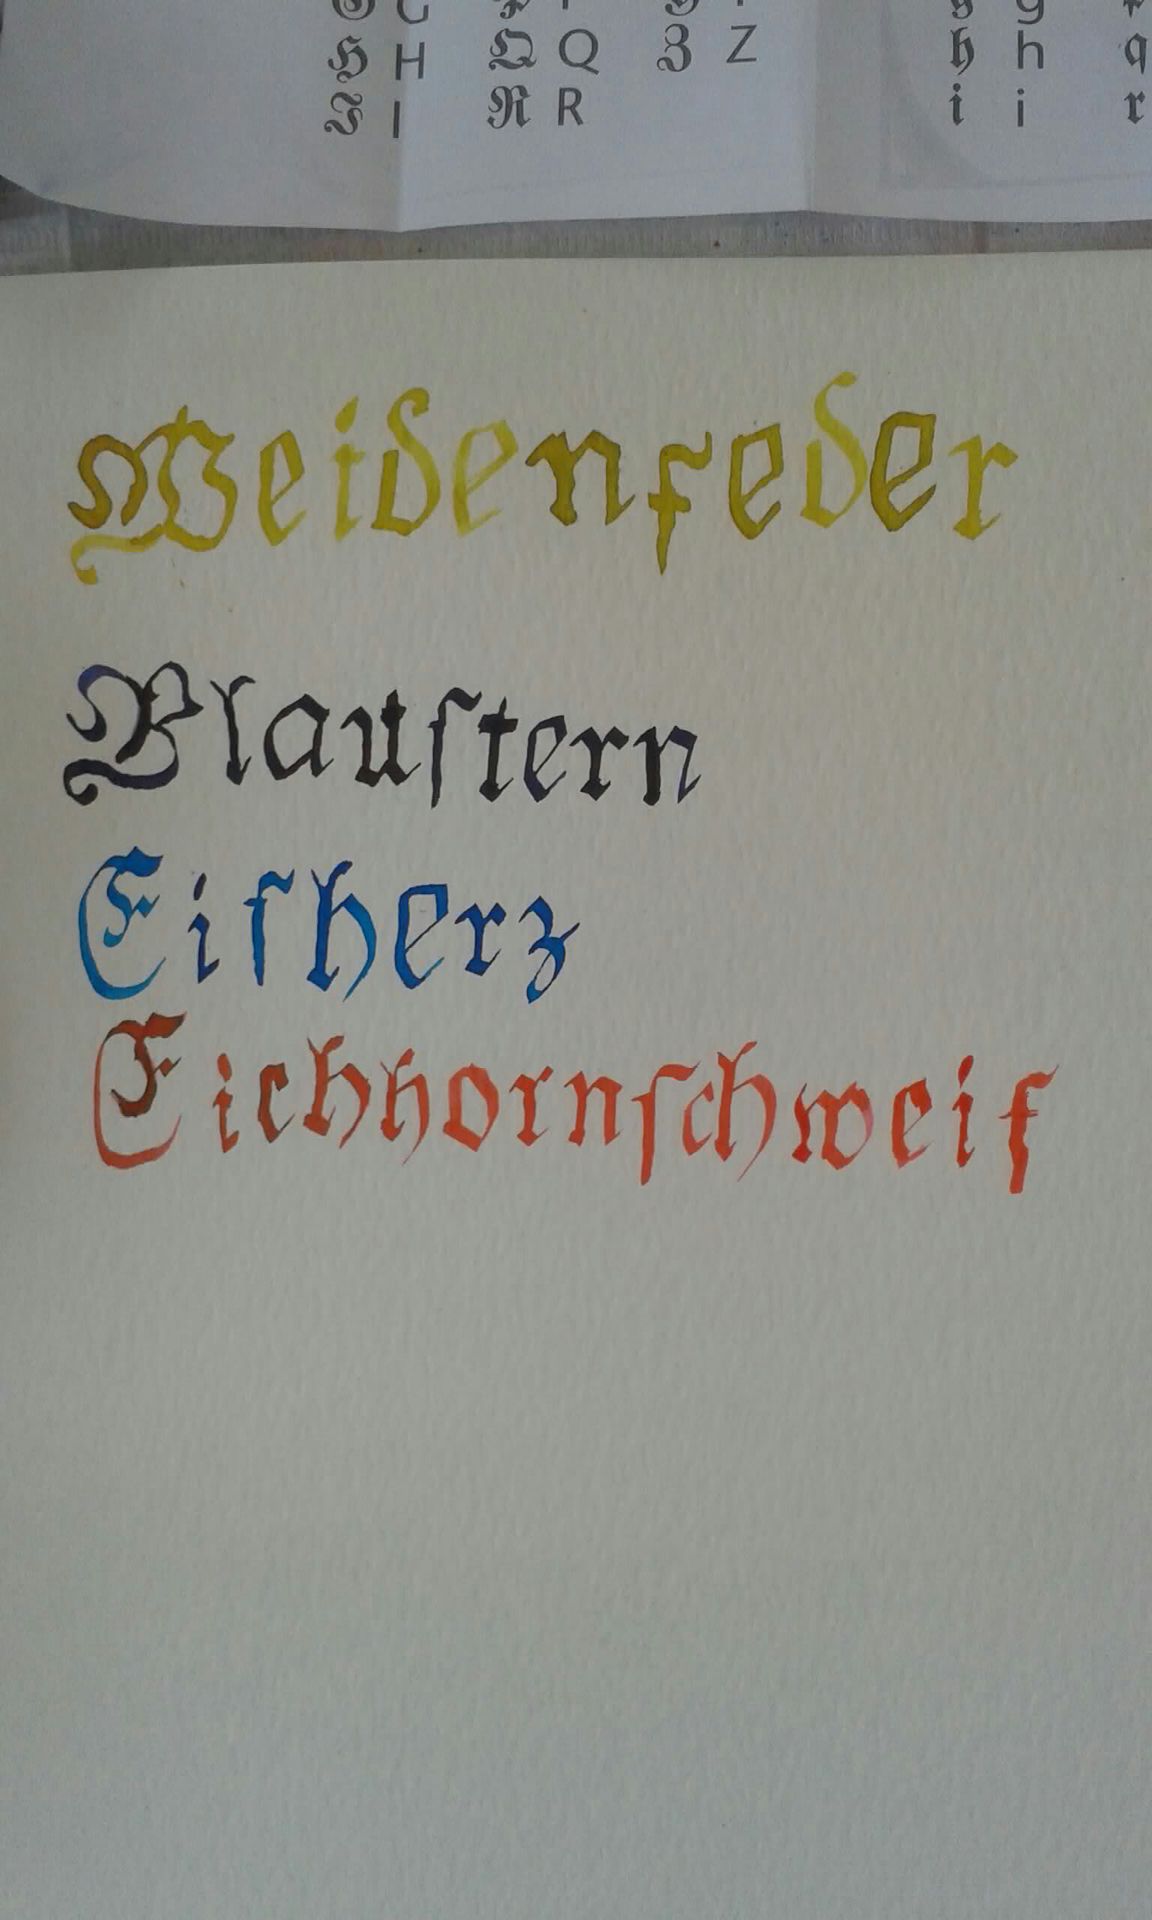 G C P Y g
H H Q Q Z Z h h q
I I R R i i r
Weidenfeder
Blauſtern
Eiſherz
Eichhornſchweif